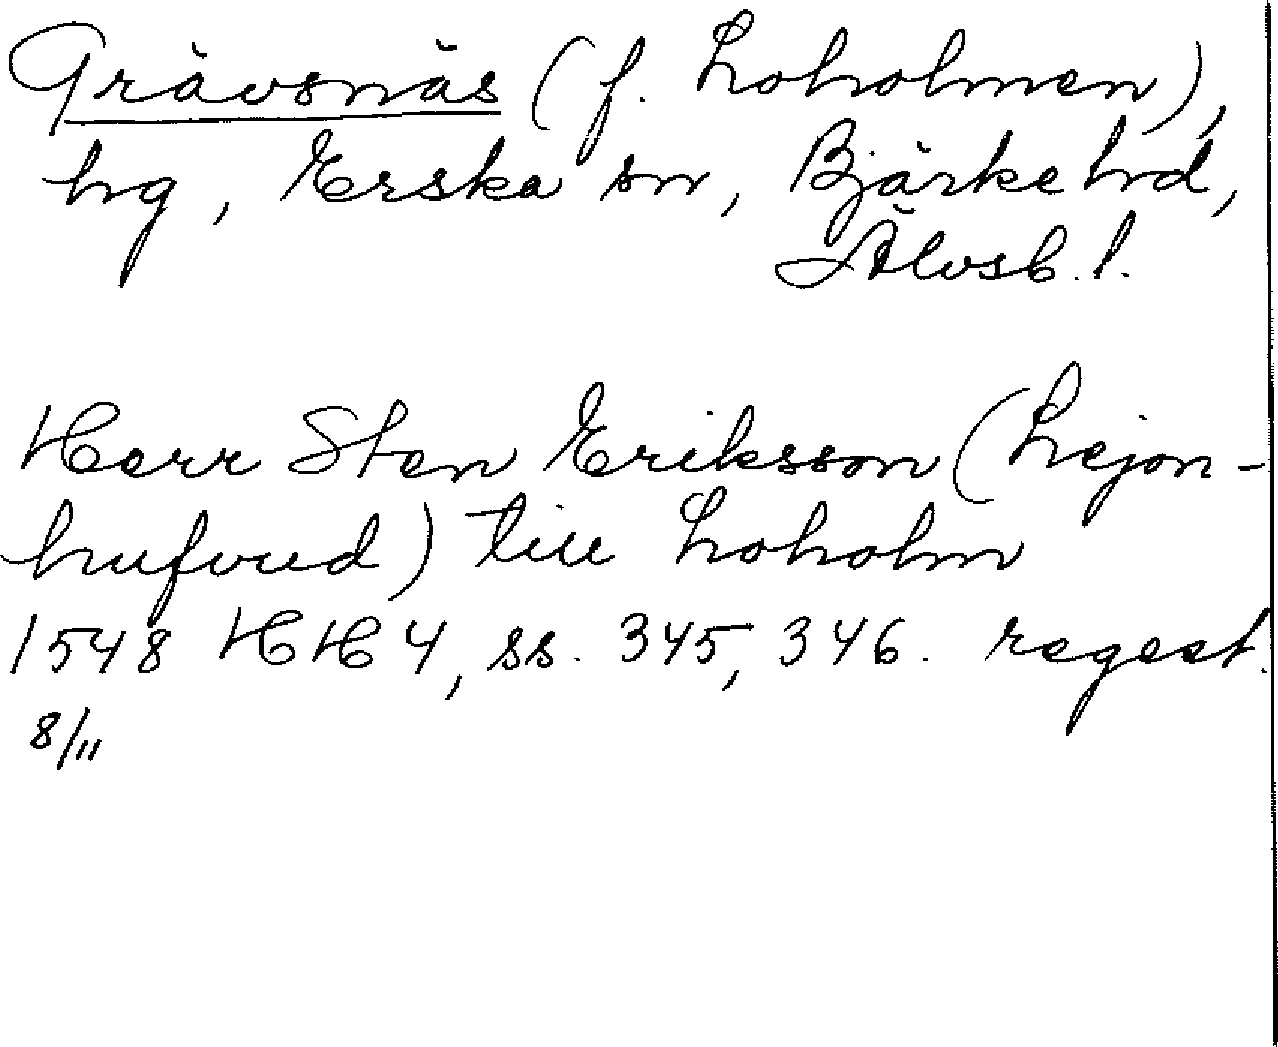 Grävsnäs (f. Loholmen),
hg, Erska sn, Bjärke hd,
Älvsb. l.
Herr Sten Eriksson (Lejon-
hufvud) till Loholm
1548 HH 4, ss. 345, 346. regest.
8/11